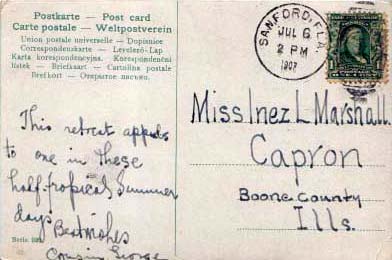 Postkarte — Post card
Carte postale — Weltpostverein
Union postale universelle — Dopisnice
Correspondenzkarte — Levelező-Lap
Karta korespondencyjna. Korespondenční
lístek — Briefkaart — Cartolina postale
Brefkort — Открытое письмо.
SANFORD, FLA.
JUL 6
2 PM
1907
Miss Inez L Marshall.
Capron
Boone County
Ills.
This retreat appeals
to one in these
half-tropical Summer
days Best wishes
Cousin George
Berlin